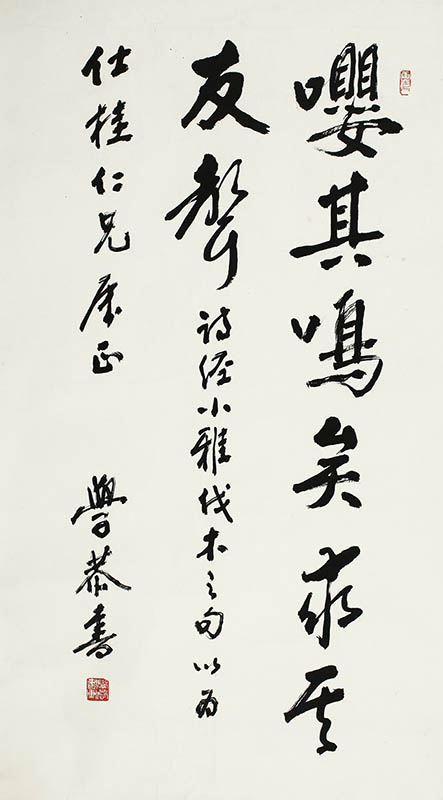 嚶其鳴矣求其
友聲 詩經小雅伐木之句以為
仕桂仁兄属正
學恭書